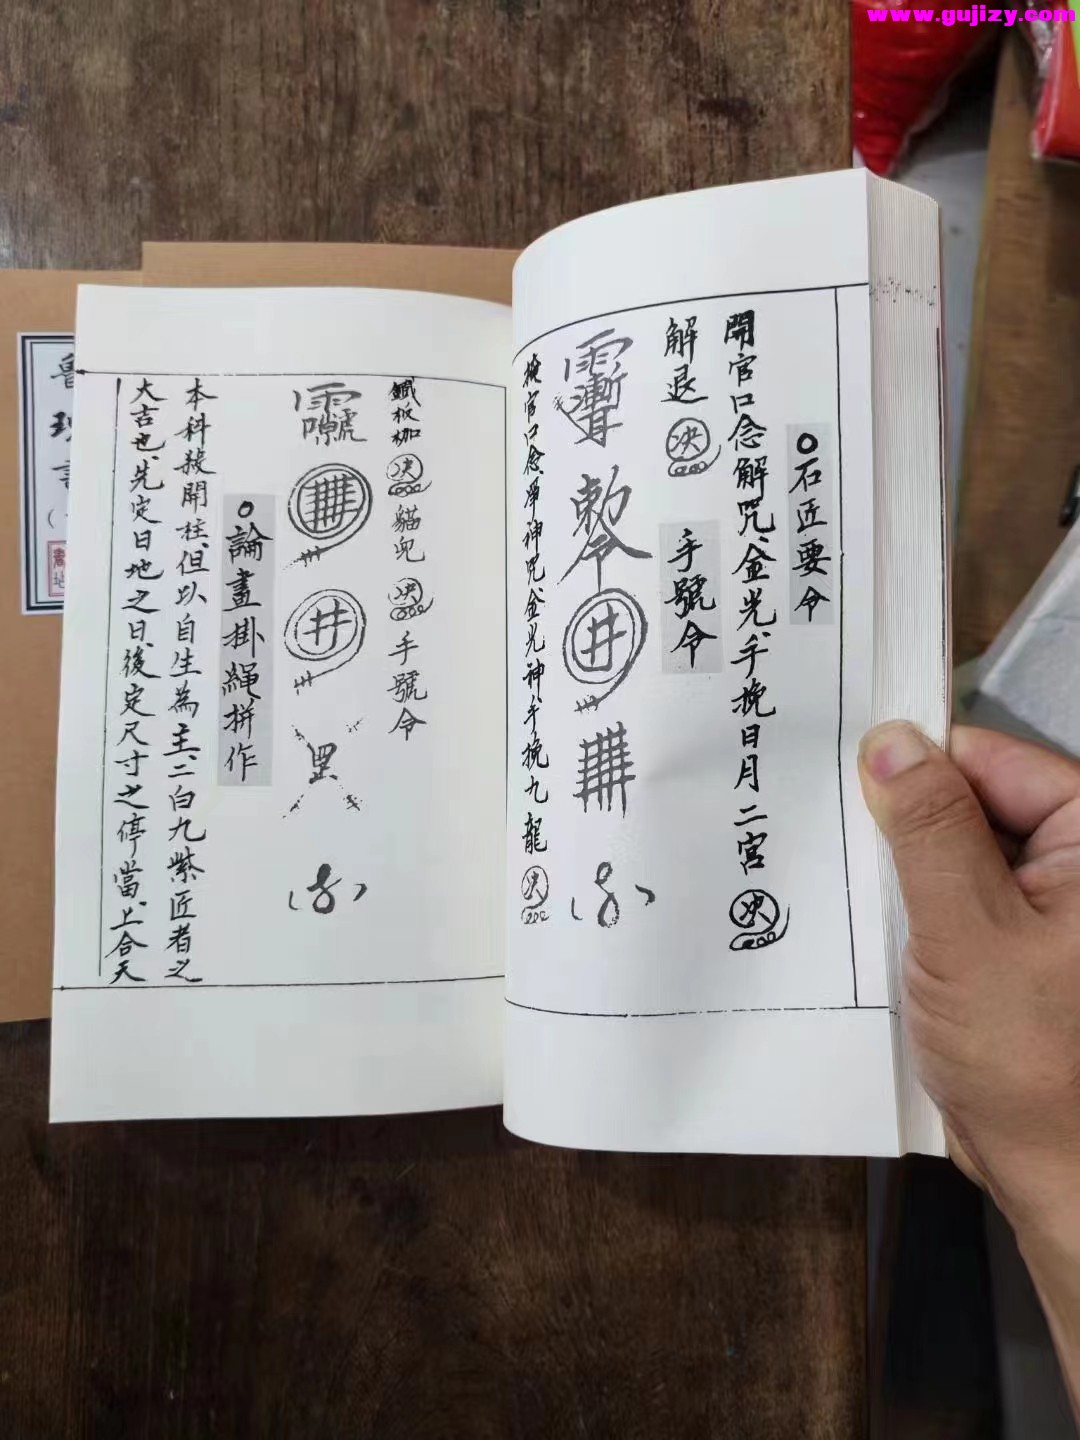 www.gujizy.com
石匠要令
開官口念解咒、金光、手挽日月二宮 决
解退 决 手號令
敕令 井
掩官口念、淨神咒、金光神、手挽九龍 决
鐵板枷 决 貓兒 决 手號令
井 罡
論畫掛繩、拼作
本科殺開柱、但以自生為主、二白九紫匠者之
大吉也、先定日地之日、後定尺寸之停當、上合天
魯班書